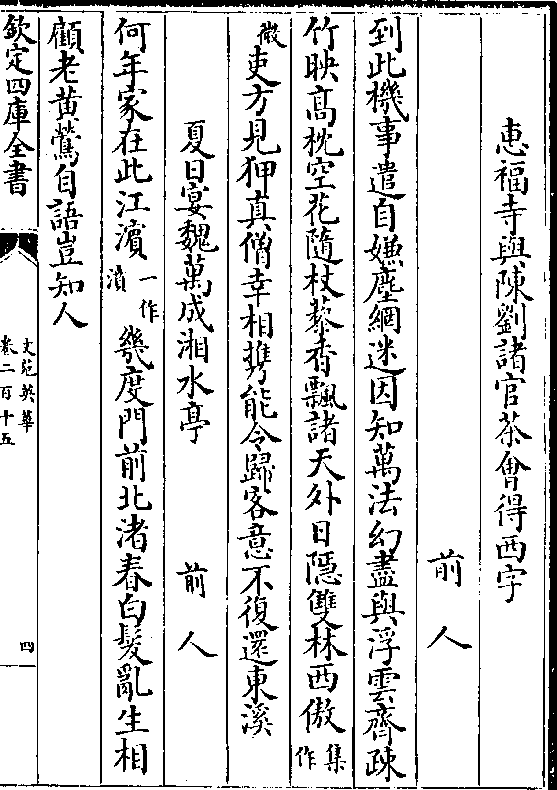 惠福寺與陳劉諸官茶會得西字
前人
到此機事遣自嫌塵網迷因知萬法幻盡與浮雲齊疎
竹映高枕空花隨杖藜香飄諸天外日隱雙林西傲集作
徼吏方見狎真僧幸相携能令歸客意不復還東溪
夏日宴魏萬成湘水亭 前人
何年家在此江濵一作濆幾度門前北渚春白髮亂生相
顧老黄鶯自語豈知人
欽定四庫全書 文苑英華卷二百十五 四